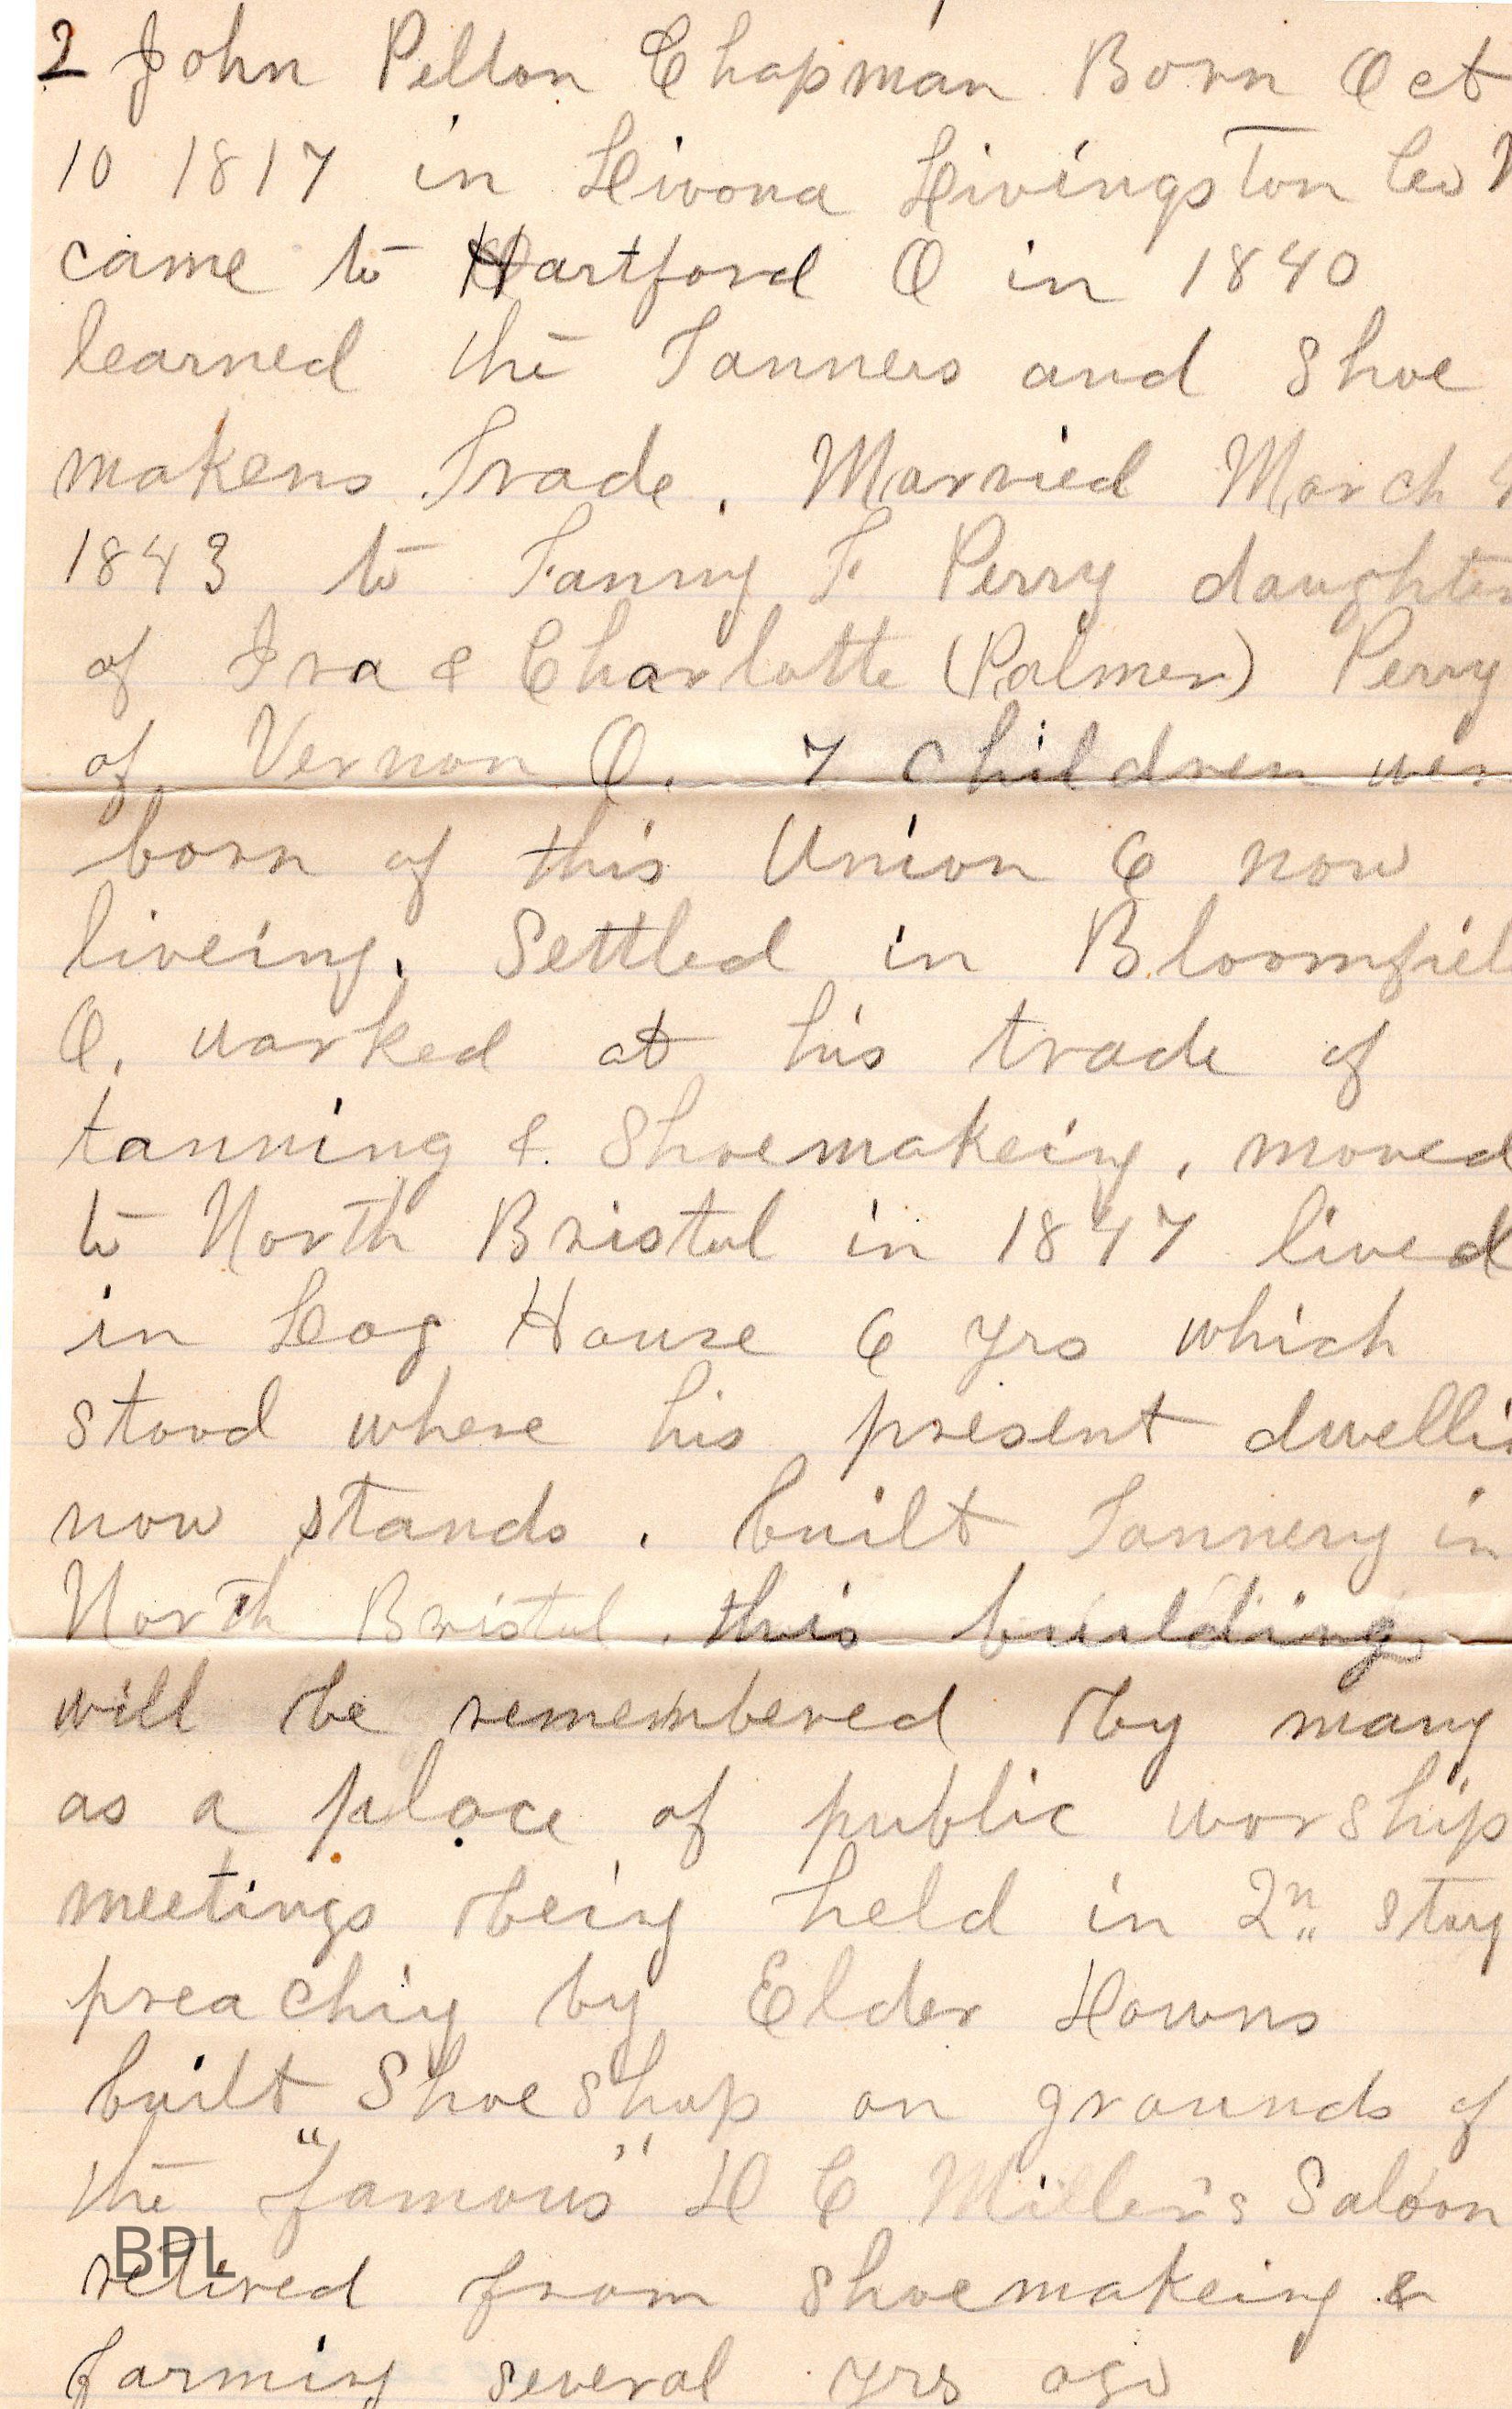 2 John Pelton Chapman Born Oct
10 1817 in Livona Livingston Co N
came to Hartford O in 1840
learned the Tanners and Shoe
makers Trade. Married March 4
1843 to Fanny F. Perry daughter
of Ira & Charlotte (Palmer) Perry
of Vernon O. 7 children wer
born of this Union 6 now
liveing. Settled in Bloomfiel
O. worked at his trade of
tanning & Shoemakeing. moved
to North Bristol in 1847 lived
in Log House 6 yrs which
stood where his present dwelli
now stands. built Tannery in
North Bristol. this building
will be remembered by many
as a place of public worship
meetings being held in 2n" story
preaching by Elder
built Shoe Shop on grounds of
the "famous" H C Miller's Saloon
BPL
retired from shoemakeing &
farming several yrs ago